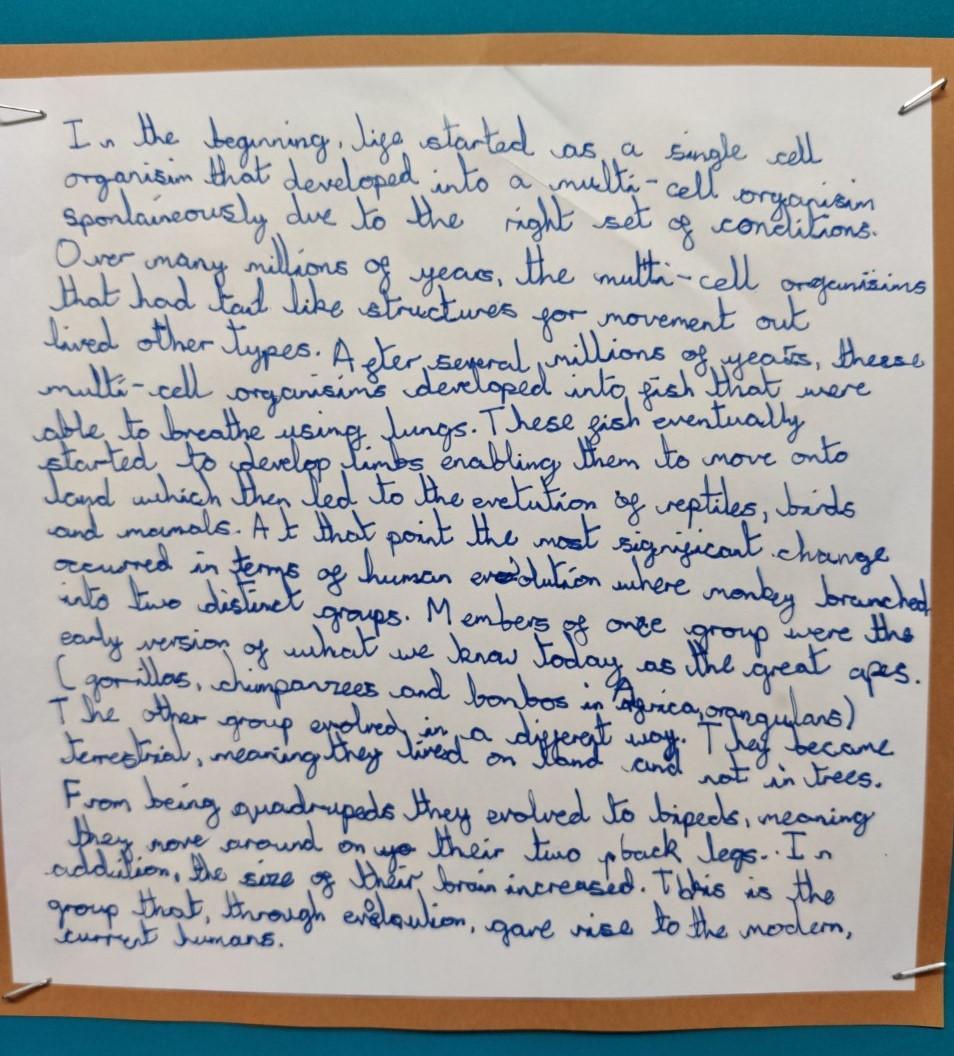 In the beginning, life started as a single cell
organisim that developed into a multi-cell organisim
spontaineously due to the right set of conditions.
Over many millions of years, the multi-cell organisims
that had tail like structures for movement out
lived other types. After several millions of years, theese
multi-cell organisims developed into fish that were
able to breathe using lungs. These fish eventually
started to develop limbs enabling them to move onto
land which then led to the evolution of reptiles, birds
and mamals. At that point the most significant change
occurred in terms of human evolution where monkey branched
into two distinct groups. Members of one group were the
early version of what we know today as the great apes.
(gorillas, chimpanzees and bonbos in Africa, orangutans)
The other group evolved in a different way. They became
terrestrial, meaning they lived on land and not in trees.
From being quadrupeds they evolved to bipeds, meaning
they move around on their two back legs. In
addition, the size of their brain increased. This is the
group that, through evolution, gave rise to the modern,
current humans.